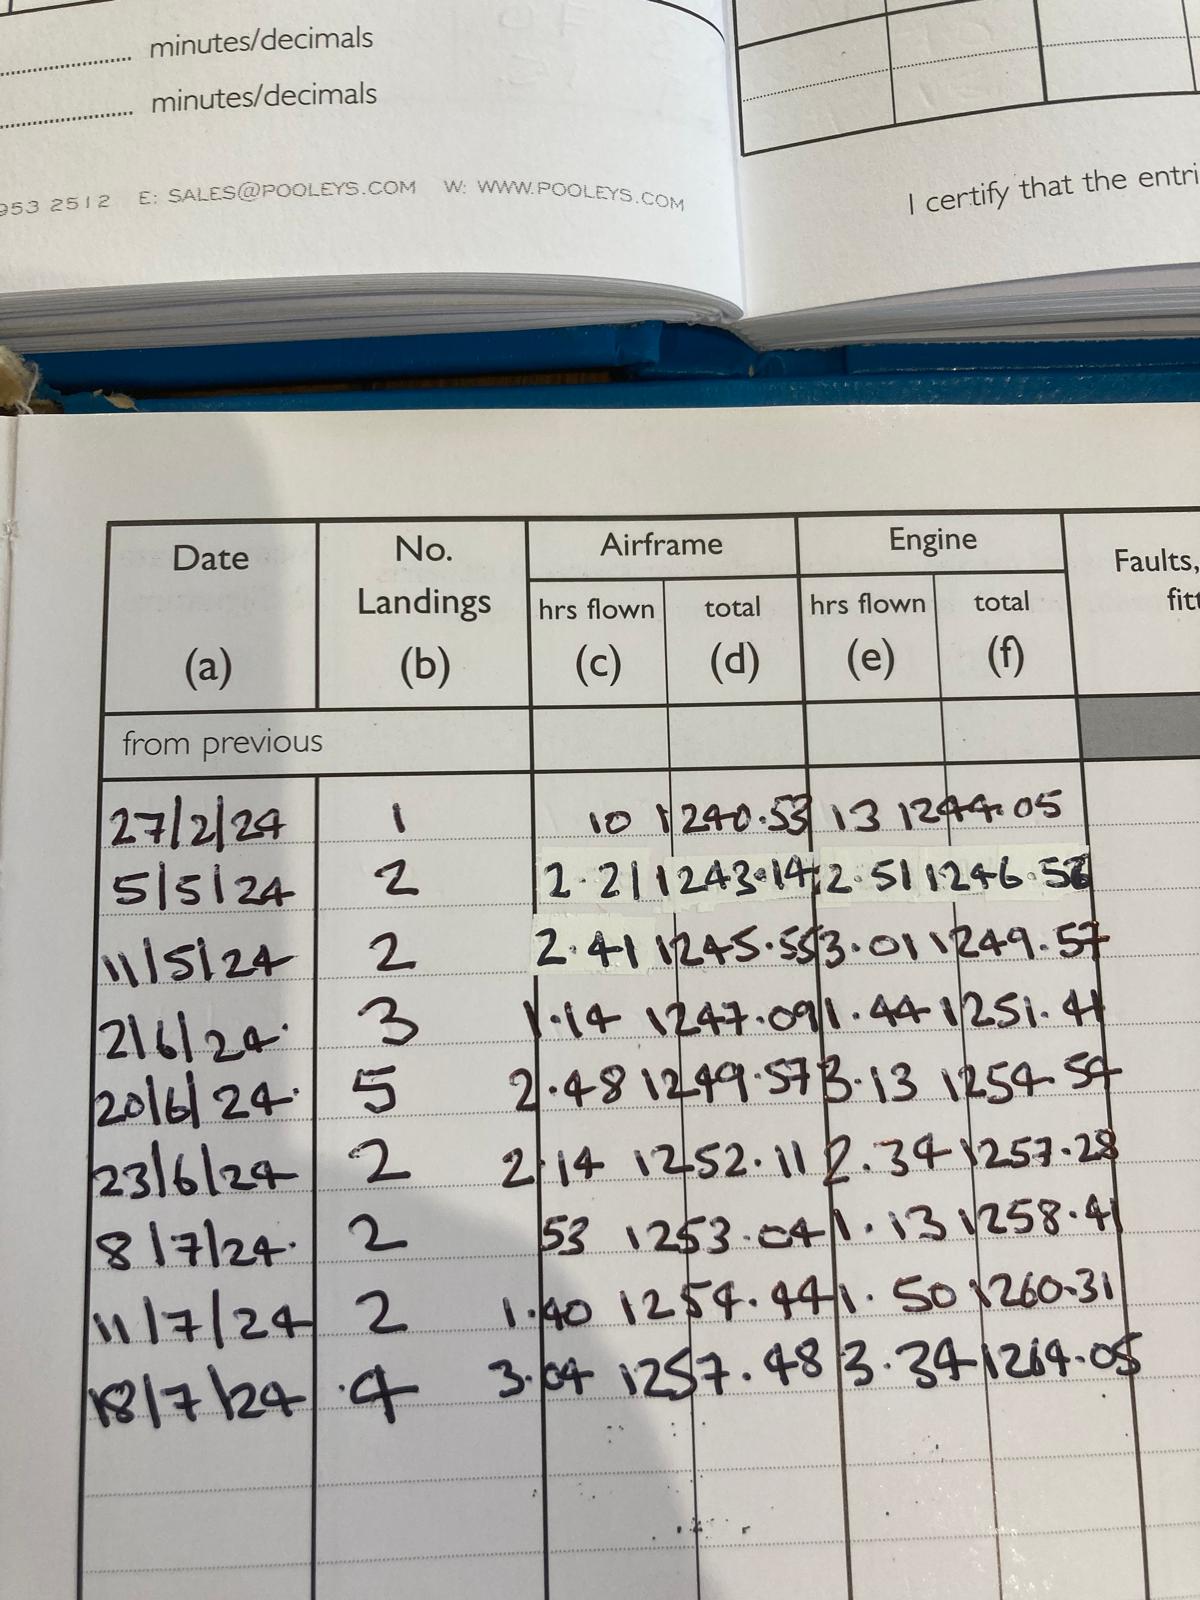 minutes/decimals
minutes/decimals
953 2512 E: SALES@POOLEYS.COM W: WWW.POOLEYS.COM
I certify that the entri
Date No. Landings Airframe Engine Faults,
hrs flown total hrs flown total fitt
(a) (b) (c) (d) (e) (f)
from previous
27/2/24 1 10 1240.53 13 1244.05
5/5/24 2 2.21 1243.14 2.51 1246.56
11/5/24 2 2.41 1245.55 3.01 1249.57
2/6/24 3 1.14 1247.09 1.44 1251.41
20/6/24 5 2.48 1249.57 3.13 1254.54
23/6/24 2 2.14 1252.11 2.34 1257.28
8/7/24 2 53 1253.04 1.13 1258.41
11/7/24 2 1.40 1254.44 1.50 1260.31
18/7/24 4 3.04 1257.48 3.34 1264.05